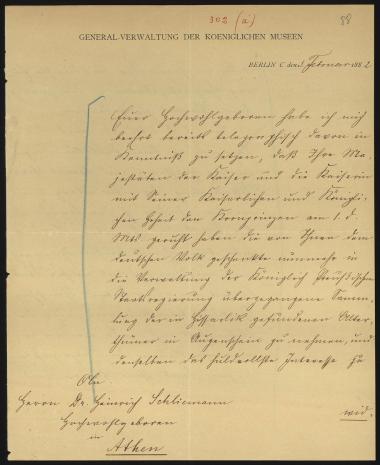 302 (a)
88
GENERAL-VERWALTUNG DER KOENIGLICHEN MUSEEN
BERLIN C den Februar 1882
Euer Hochwohlgeboren habe ich mich
beehrt bereits telegraphisch davon in
Kenntniß zu setzen, daß Ihre Ma-
jestäten der Kaiser und die Kaiserin
mit Seiner Kaiserlichen und Königli-
chen Hoheit dem Kronprinzen am 1. d.
Mts geruht haben die von Ihnen dem
deutschen Volk geschenkte nunmehr in
die Verwaltung der Königlich Preußischen
Staatsregierung übergegangene Samm-
lung der in Hissarlik gefundenen Alter-
thümer in Augenschein zu nehmen, und
denselben das huldvollste Interesse zu
wid-
An
Herrn Dr. Heinrich Schliemann
Hochwohlgeboren
in
Athen